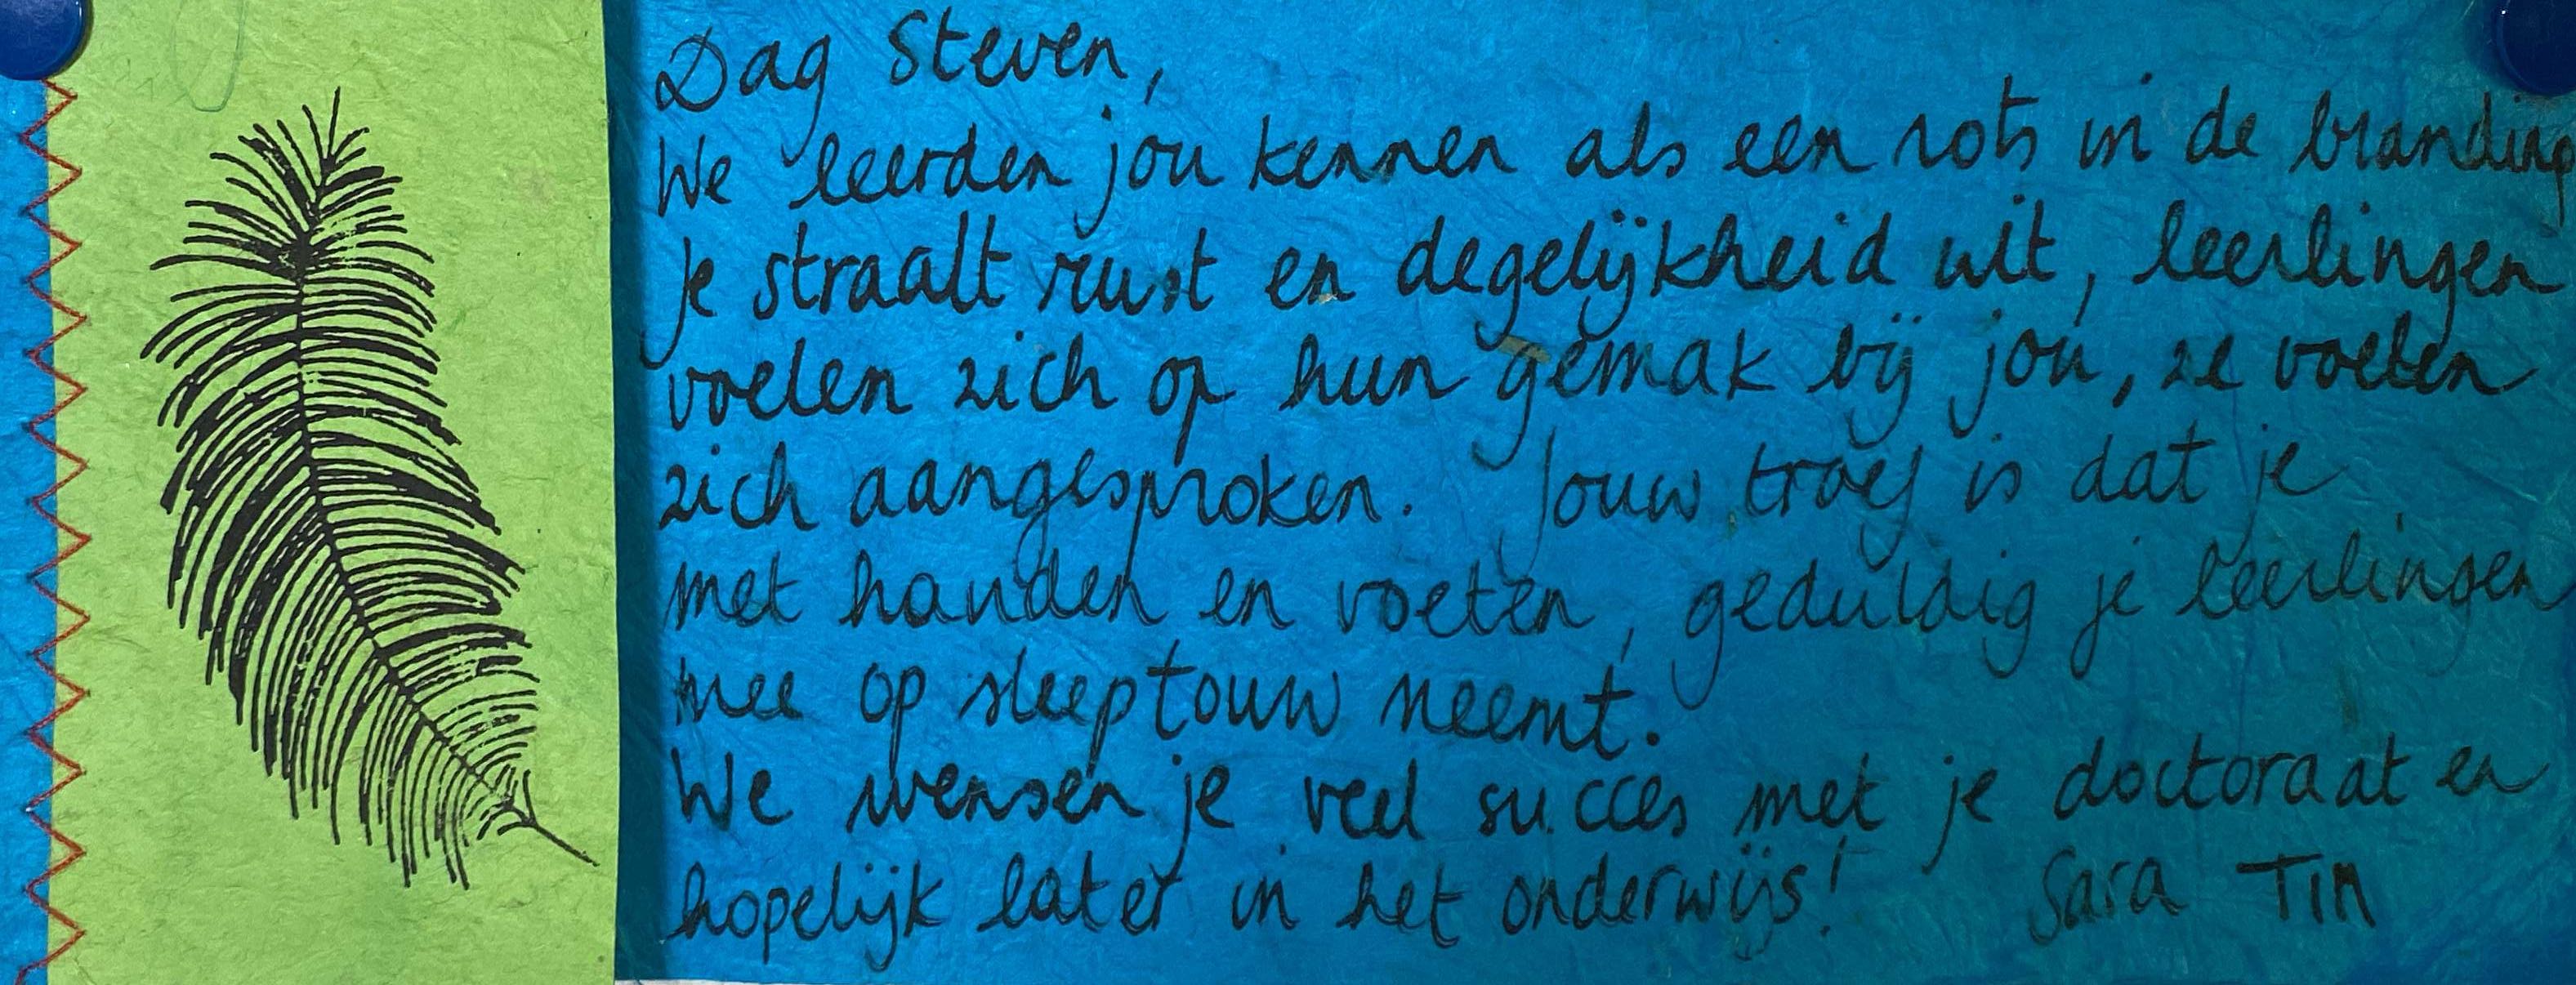 Dag Steven,
We leerden jou kennen als een rots in de branding
Je straalt rust en degelijkheid uit, leerlingen
voelen zich op hun gemak bij jou, ze voelen
zich aangesproken. Jouw troef is dat je
met handen en voeten, geduldig je leerlingen
mee op sleeptouw neemt.
We wensen je veel succes met je doctoraat en
hopelijk later in het onderwijs! Sara Tim